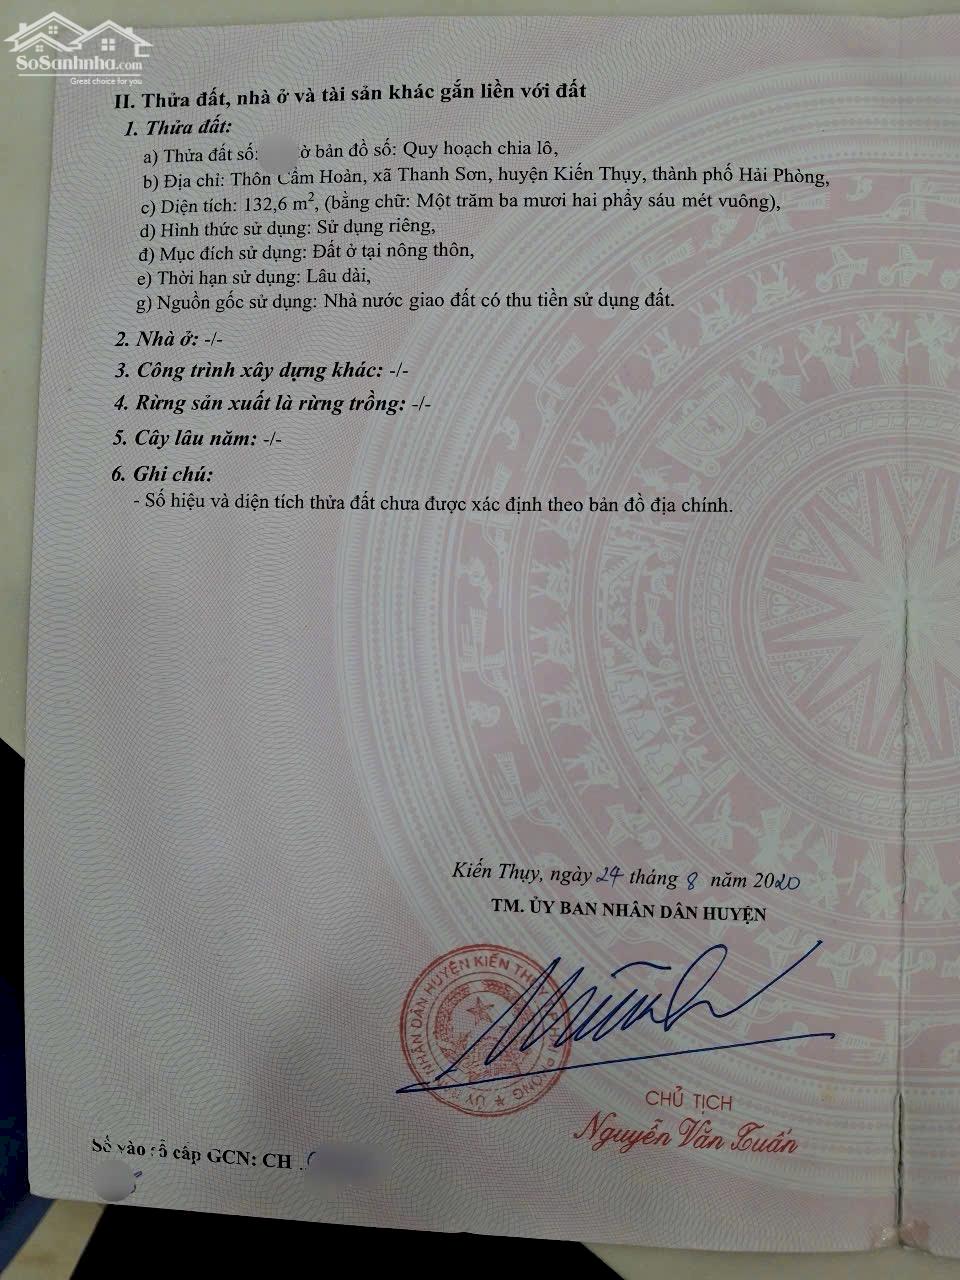 SoSanhnha.com
Great choice for you
II. Thửa đất, nhà ở và tài sản khác gắn liền với đất
1. Thửa đất:
a) Thửa đất số: ờ bản đồ số: Quy hoạch chia lô,
b) Địa chỉ: Thôn Cẩm Hoàn, xã Thanh Sơn, huyện Kiến Thụy, thành phố Hải Phòng,
c) Diện tích: 132,6 m², (bằng chữ: Một trăm ba mươi hai phẩy sáu mét vuông),
d) Hình thức sử dụng: Sử dụng riêng,
đ) Mục đích sử dụng: Đất ở tại nông thôn,
e) Thời hạn sử dụng: Lâu dài,
g) Nguồn gốc sử dụng: Nhà nước giao đất có thu tiền sử dụng đất.
2. Nhà ở: -/-
3. Công trình xây dựng khác: -/-
4. Rừng sản xuất là rừng trồng: -/-
5. Cây lâu năm: -/-
6. Ghi chú:
- Số hiệu và diện tích thửa đất chưa được xác định theo bản đồ địa chính.
Kiến Thụy, ngày 24 tháng 8 năm 2020
TM. ỦY BAN NHÂN DÂN HUYỆN
ỦY BAN NHÂN DÂN HUYỆN KIẾN THỤY TP HẢI PHÒNG
CHỦ TỊCH
Nguyễn Văn Tuấn
Số vào sổ cấp GCN: CH